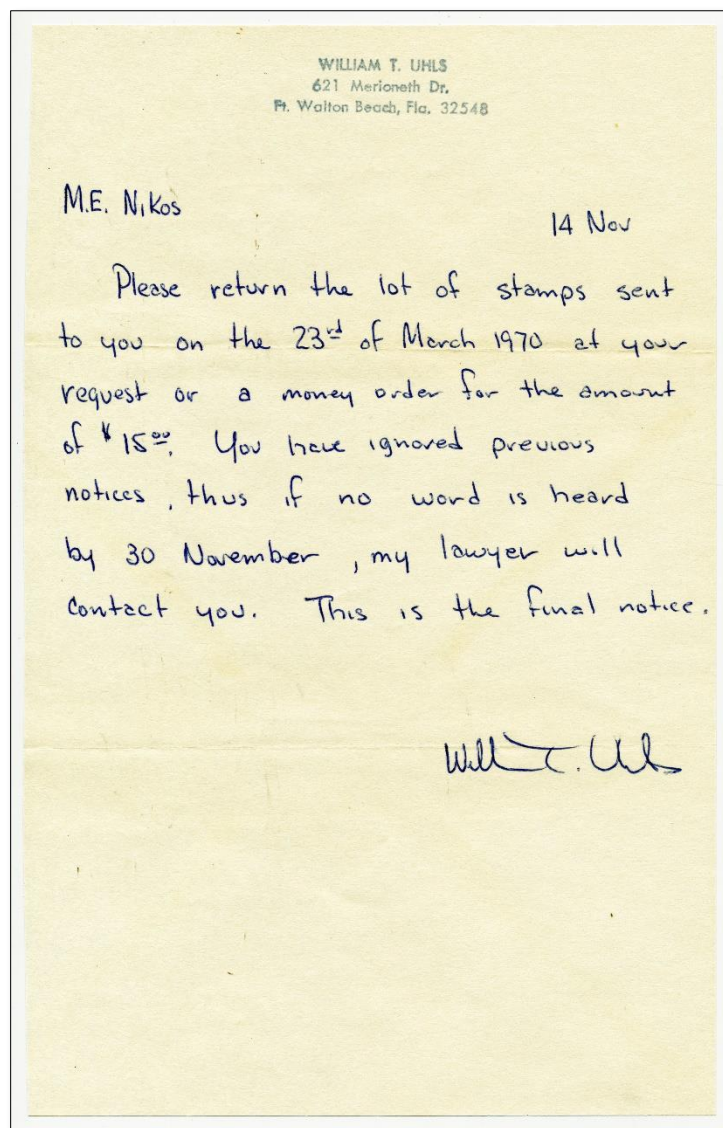 WILLIAM T. UHLS
621 Merioneth Dr.
Ft. Walton Beach, Fla. 32548
M.E. Nikos
14 Nov
Please return the lot of stamps sent
to you on the 23rd of March 1970 at your
request or a money order for the amount
of $15.00. You have ignored previous
notices, thus if no word is heard
by 30 November, my lawyer will
contact you. This is the final notice.
William T. Uhls